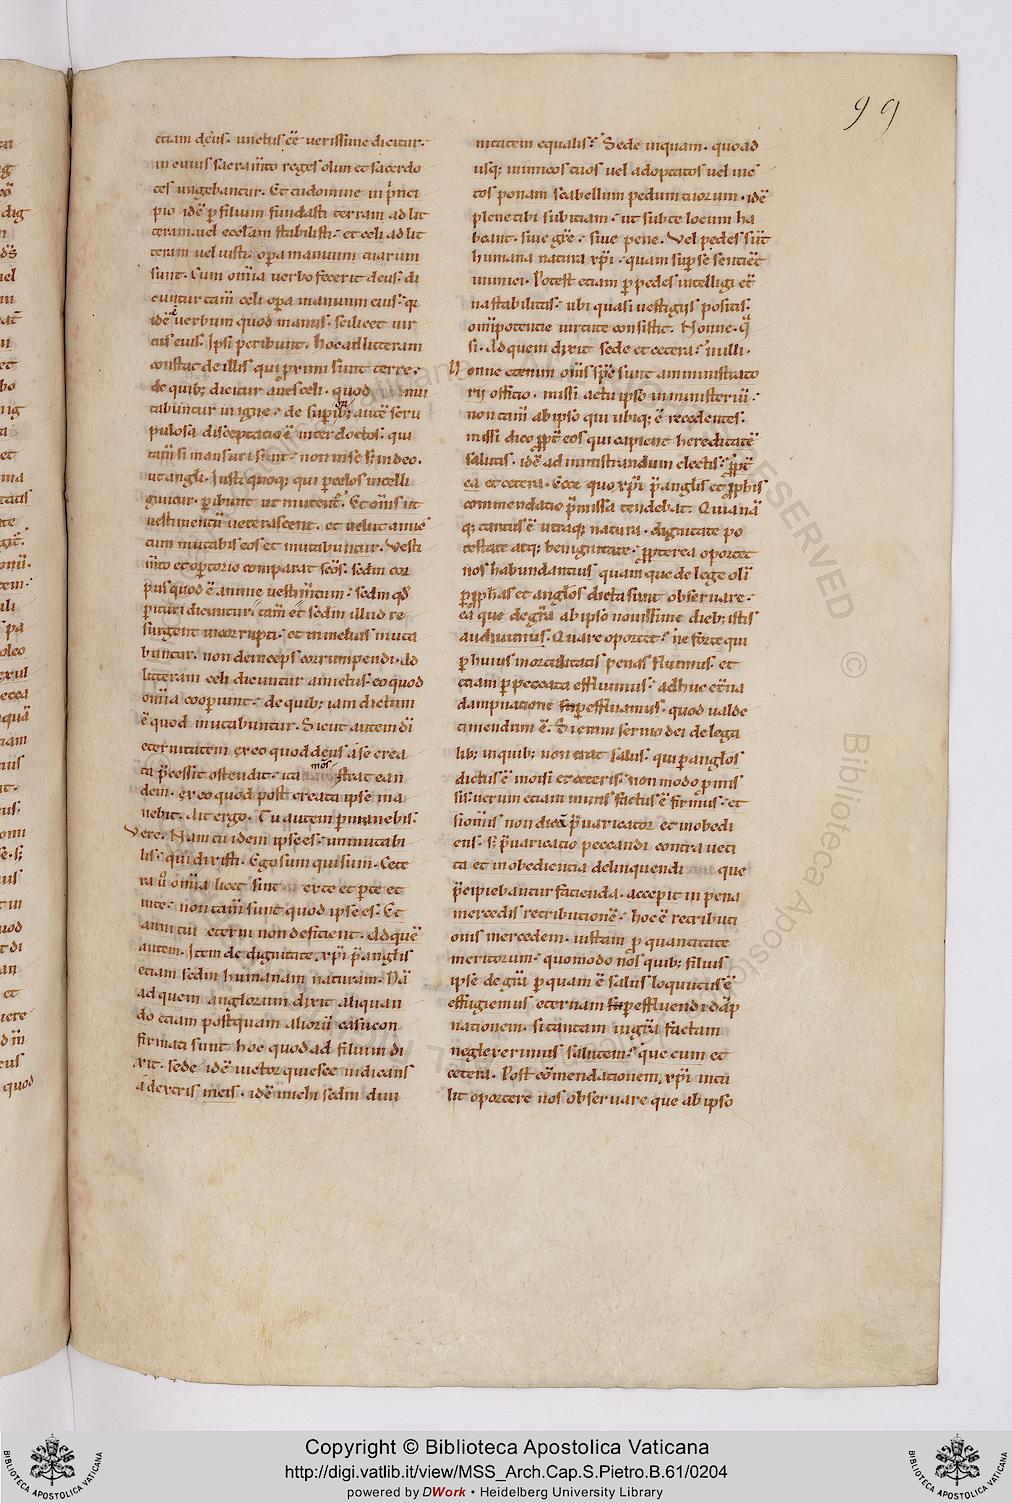 99
etiam deus. unctus eē uerissime dicitur.
in cuius sacram̄to reges olim et sacerdo
tes ungebantur. Et tu domine in p̄nci
pio idē p̱ filium fundasti terram ad lit
teram. uel eccl̄am stabilisti. et celi ad lit
teram uel iusti. opa manuum tuarum
sunt. Cum om̄ia uerbo fecerit deus. di
cuntur tam̄ celi opa manuum eius. q̄
idē ē uerbum quod manus. scilicet uir
tus eius. Ipsi peribunt. hoc ad litteram
constat de illis qui p̱rimi sunt terre.
de quib; dicitur
tabuntur in igne. de sup̱iorib; autē scru
pulosa disceptatio ē inter doctos. qui
tam̄ si mansuri sunt. non in se s; in deo.
ut angl̄i. Iusti quoq; qui p̱ celos intelli
guntur. p̱ibunt ut mutent̄. Et om̄s ut
uestimentū ueterascent. et uelut amic
tum mutabis eos et mutabuntur. Vesti
m̄to et op̱torio comparat sc̄os. sedm cor
pus quod ē anime uestim̄tum. sedm qd̄
p̱ituri dicuntur. tam̄ et sedm illud re
surgent incorrupti. et in melius muta
buntur. non deinceps corrumpendi. Ad
litteram celi dicuntur amictus. eo quod
om̄ia cooperiunt. de quib; iam dictum
ē quod mutabuntur. Sicut autem di
eternitatem ex eo quod deus a se crea
ta p̄cessit ostendit. ita mōstrat ean
dem. ex eo quod post creata ipse ma
nebit. Ait ergo. Tu autem p̱manebis.
Vere. Nam tu idem ipse es. inmutabi
lis. qui dixisti. Ego sum qui sum. Cete
ra ū om̄ia licet sint ex te et p̱ te et
in te. non tam̄ sunt quod ipse es. Et
anni tui eterni non deficient. Ad quē
autem. Item de dignitate xp̄i p̄ angl̄is
etiam sedm humanam naturam. Nā
ad quem anglorum dixit aliquan
do etiam postquam aliorū casu con
firmati sunt hoc quod ad filium di
xit. sede idē uictor quiesce iudicans
a dextris meis. idē michi sedm diui
nitatem equalis. Sede inquam. quoad
usq; inimicos tuos uel adoptatos uel uic
tos ponam scabellum pedum tuorum. idē
plene tibi subiciam. ut sub te locum ha
beant. siue gr̄e. siue pene. Vel pedes sūt
humana natura xp̄i. quam sup̱ se sentiēt
inimici. Potest etiam p̱ pedes intelligi et̄
na stabilitas. ubi quasi uestigiis positis.
om̄ipotentie uirtute consistit. Nonne. q̄
si. Ad quem dixit sede et cetera. nulli.
Nonne etenim om̄s sp̄c sunt amministrato
rii officio. missi actu ipso in ministeriū.
non tam̄ ab ipso qui ubiq; ē recedentes.
missi dico p̱pt̄ eos qui capient hereditatē
salutis. idē ad ministrandum electis. p̱pt̄
ea et cetera. Ecce quo xp̄i p̄ angl̄is et p̱phis
commendatio p̄missa tendebat. Quia nā
q; tantus ē utraq; natura. dignitate po
testate atq; benignitate. p̱pterea oportet
nos habundantius quam que de lege oli
p̱ p̱phas et angl̄os dicta sunt obseruare.
ea que de gr̄a ab ipso nouissime dieb; istis
audiuimus. Quare oportet. ne forte qui
p̱ huius mortalitatis penas fluimus. et
etiam p̱ peccata effluimus. adhuc et̄na
dampnatione p̱effluamus. quod ualde
timendum ē. Si enim sermo dei de lega
lib; in quib; non erat salus. qui p̱ angl̄os
dictus ē moisi et ceteris. non modo p̱mis
sis. uerum etiam minis factus ē firmus. et
si om̄is non dicā p̄uaricator et inobedi
ens. s; p̄uaricatio peccandi contra ueti
ta et inobedientia delinquendi que
p̄cipiebantur facienda. accepit in pena
mercedis retributionē. hoc ē retributi
onis mercedem. iustam p̱ quantitate
meritorum. quomodo nos quib; filius
ipse de gr̄a p̱ quam ē salus loquutus ē
effugiemus eternam p̱effluendi dāp
nationem. si tantam in gr̄a factam
neglexerimus salutem. que cum et
cetera. Post cōmendationem xp̄i intu
lit oportere nos obseruare que ab ipso
ALL RIGHTS RESERVED © Biblioteca Apostolica Vaticana
Copyright © Biblioteca Apostolica Vaticana
http://digi.vatlib.it/view/MSS_Arch.Cap.S.Pietro.B.61/0204
powered by DWork • Heidelberg University Library
BIBLIOTECA APOSTOLICA VATICANA
BIBLIOTECA APOSTOLICA VATICANA